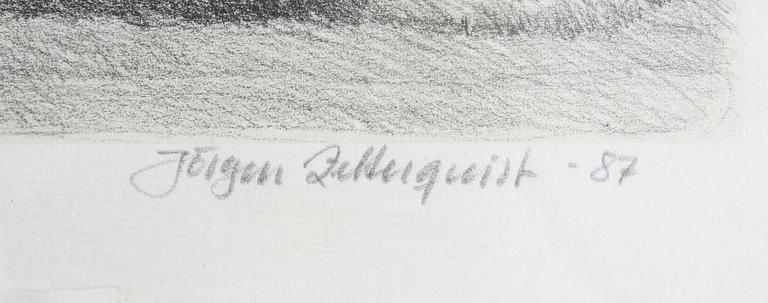 Jörgen Zetterquist - 87